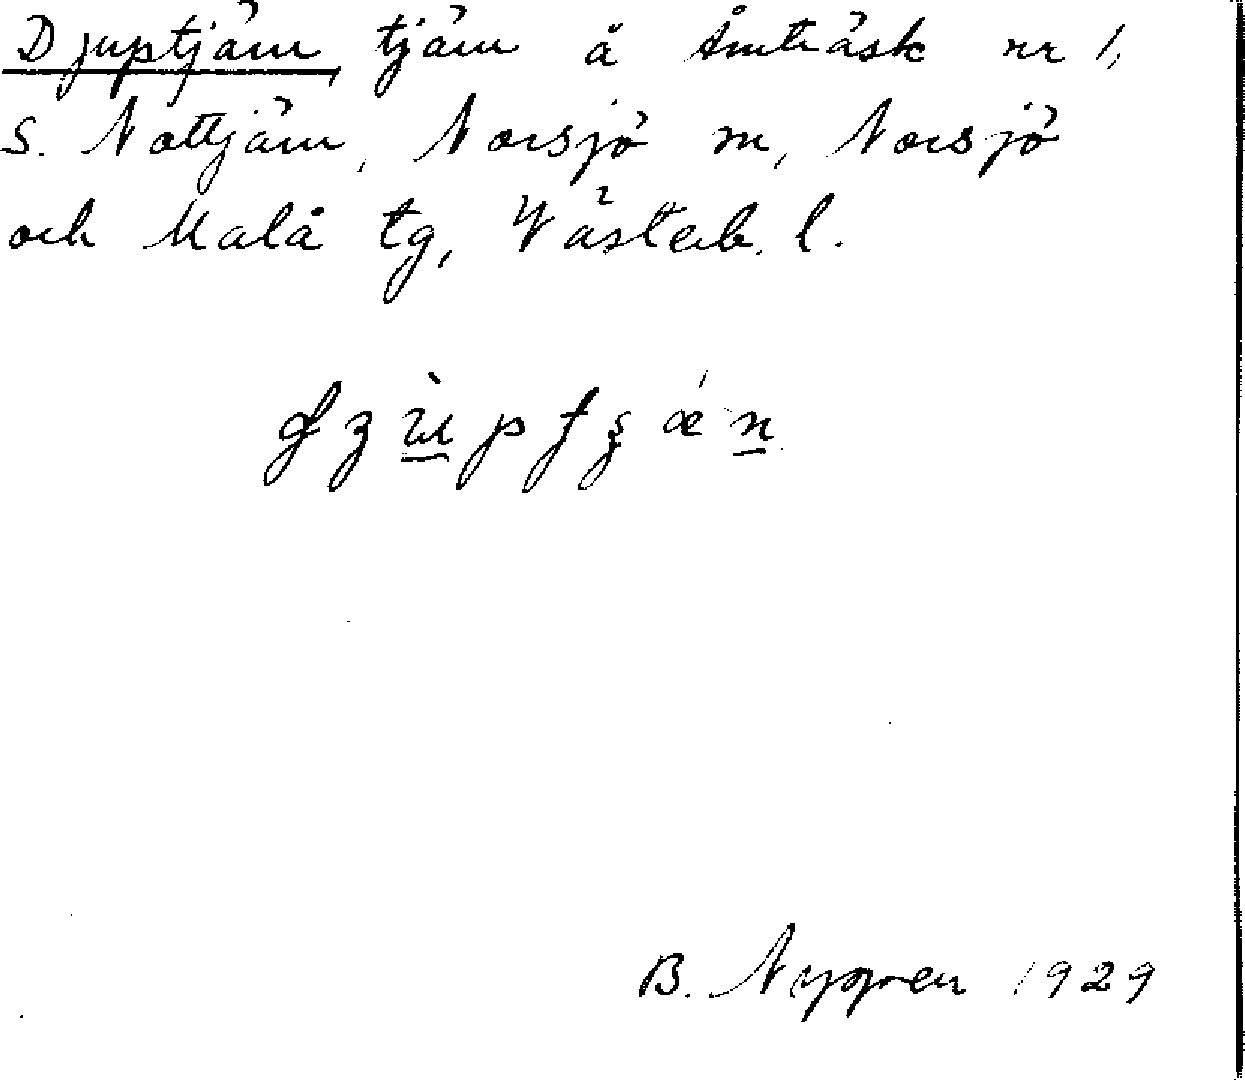 Djuptjärn, tjärn å Åmträsk nr 1,
S. Nottjärn, Norsjö sn, Norsjö
och Malå tg, Västerb. l.
B. Nygren 1929